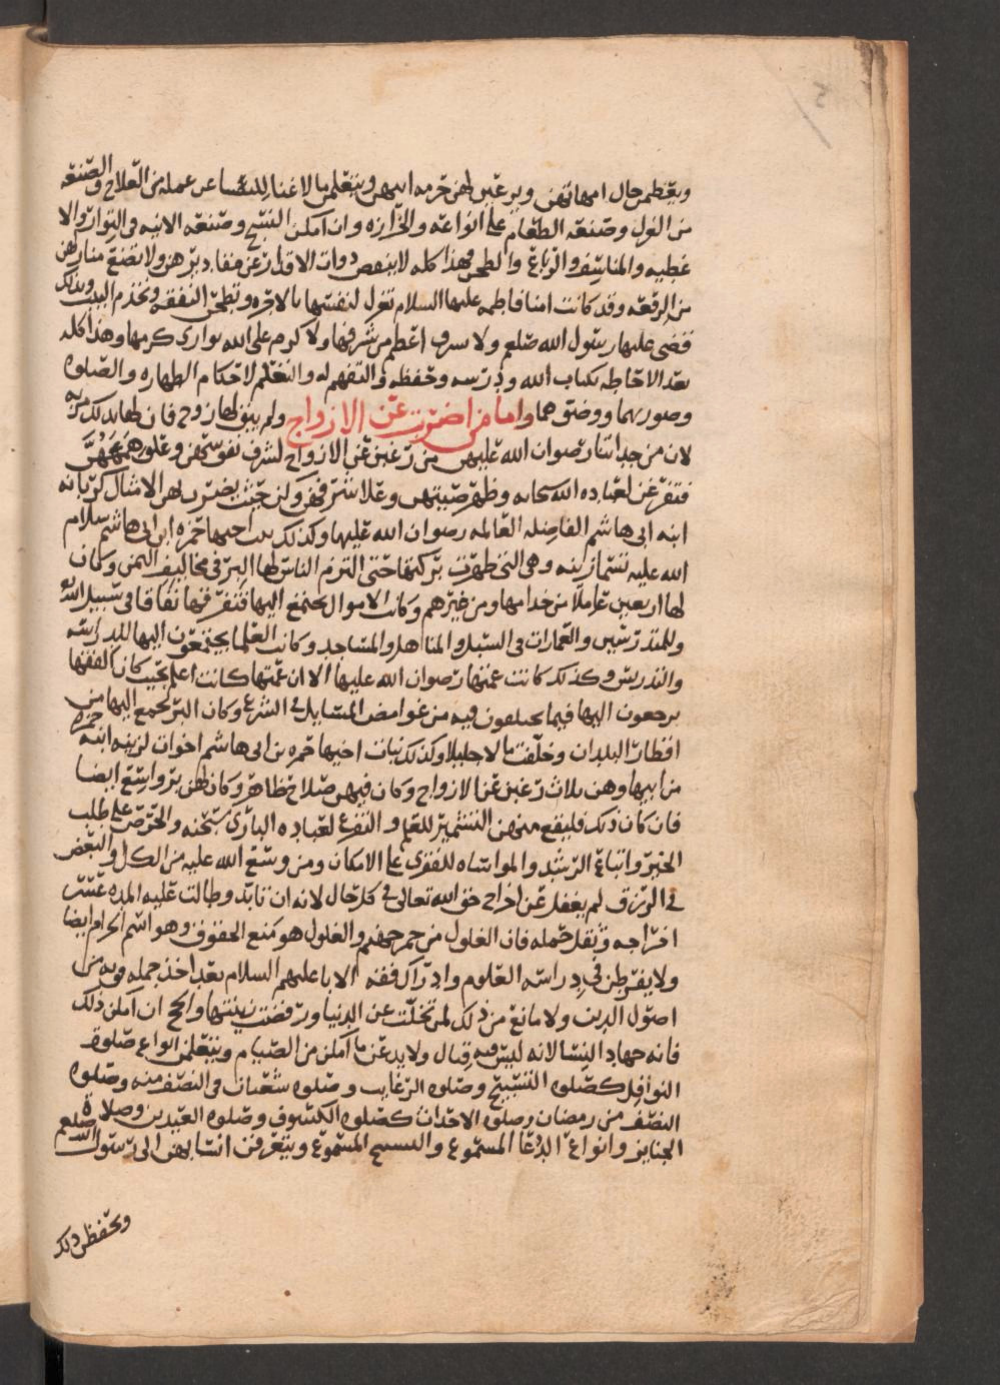 ويعظمن حال امهاتهن ويرعين لهن حرمه ابيهن ويتعلمن ما لا غنا للنسا عن عمله من العلاج والصنعه
من الغزل وصنعه الطعام على انواعه والخرازه وان امكن النسج وصنعه الانيه في التوار والا
غطيه والمناشف والرباغ والطحن فهذا كله لا ينقص دوات الاقدار عن مقاديرهن ولا تضع منارهن
من الرفعه وقد كانت امنا فاطمه عليها السلام تغزل لنفسها بالاجره وتطحن النفقه وتخدم البيت وبذلك
قضى عليها رسول الله صلعم ولا شرف اعظم من شرفها ولا كرم على الله يوازي كرمها وهذا كله
بعد الاحاطه بكتاب الله ودرسه وحفظه والتفهم له والتعلم لاحكام الطهاره والصلوه
وصورهما ووضوهما واما من اضربت عن الازواج ولم يبق لها زوج فان لها بذلك مزيه
لان من جداتنا رضوان الله عليهن من رغبن عن الازواج لشرف نفوسهن وعلو هممهن
فتفرغن لعباده الله سبحانه وظهر صيتهن وعلا شرفهن ولن حيث يضرب بهن الامثال كريانه
ابنه ابي هاشم الفاضله العالمه رضوان الله عليها وكذلك بنت اخيها حمزه ابن ابي هاشم سلام
الله عليه تسما زينه وهي التي ظهرت بركتها حتى التزم الناس لها البر في مخاليف اليمن وكان
لها اربعين عاملا من خدامها ومن غيرهم وكانت الاموال تجتمع اليها فتنفر فيها نفاقا في سبيل الله
وللمتدرسين والعمارات في السبل والمناهل والمساجد وكانت العلما يجتمعون اليها للدراسه
والتدريس وكذلك كانت عمتها رضوان الله عليها الا ان عمتها كانت اعلم بحيث كان الفقها
يرجعون اليها فيما يختلفون فيه من غوامض المسايل في الشرع وكان البر يجمع اليها من
اقطار البلدان وخلفت مالا جليلا وكذلك بنات اخيها حمزه بن ابي هاشم اخوات لزينه ابنه حمزه
من ابيها وهن ثلاث رغبن عن الازواج وكان فيهن صلاح ظاهر وكان لهن بر واسع ايضا
فان كان ذلك فليقع منهن التشمير للعلم والتفرغ لعباده الباري سبحنه والحرص على طلب
الخير واتباع الرشد والمواساه للفقرى على الامكان ومن وسع الله عليه من الكل والبعض
في الرزق لم يغفل عن اخراج حق الله تعالى في كل حال لانه ان تابد وطالت عليه المده عسر
اخراجه وثقل حمله فان الغلول من جمر جهنم والغلول هو كمنع الحقوق وهو اسم الحرام ايضا
ولا يفرطن في دراسه العلوم وادراك فقه الابا عليهم السلام بعد اخذ جمله قويه من
اصول الدين ولا مانع من ذلك لمن تخلت عن الدنيا ورفضت زينتها والحج ان امكن ذلك
فانه جهاد النسا لانه ليس فيه قتال ولا يدعن ما امكن من الصيام ويتعلمن انواع صلوه
النوافل كصلوه التسبيح وصلوه الرغايب وصلوه شعبان في النصف منه وصلوه
النصف من رمضان وصلوه الاحداث كصلوه الكسوف وصلوه العيدين وصلاة
الجنايز وانواع الدعا المسموع والتسبيح المسموع ويتعرفن انسابهن الى رسول الله صلعم
ويحفظن ذلك